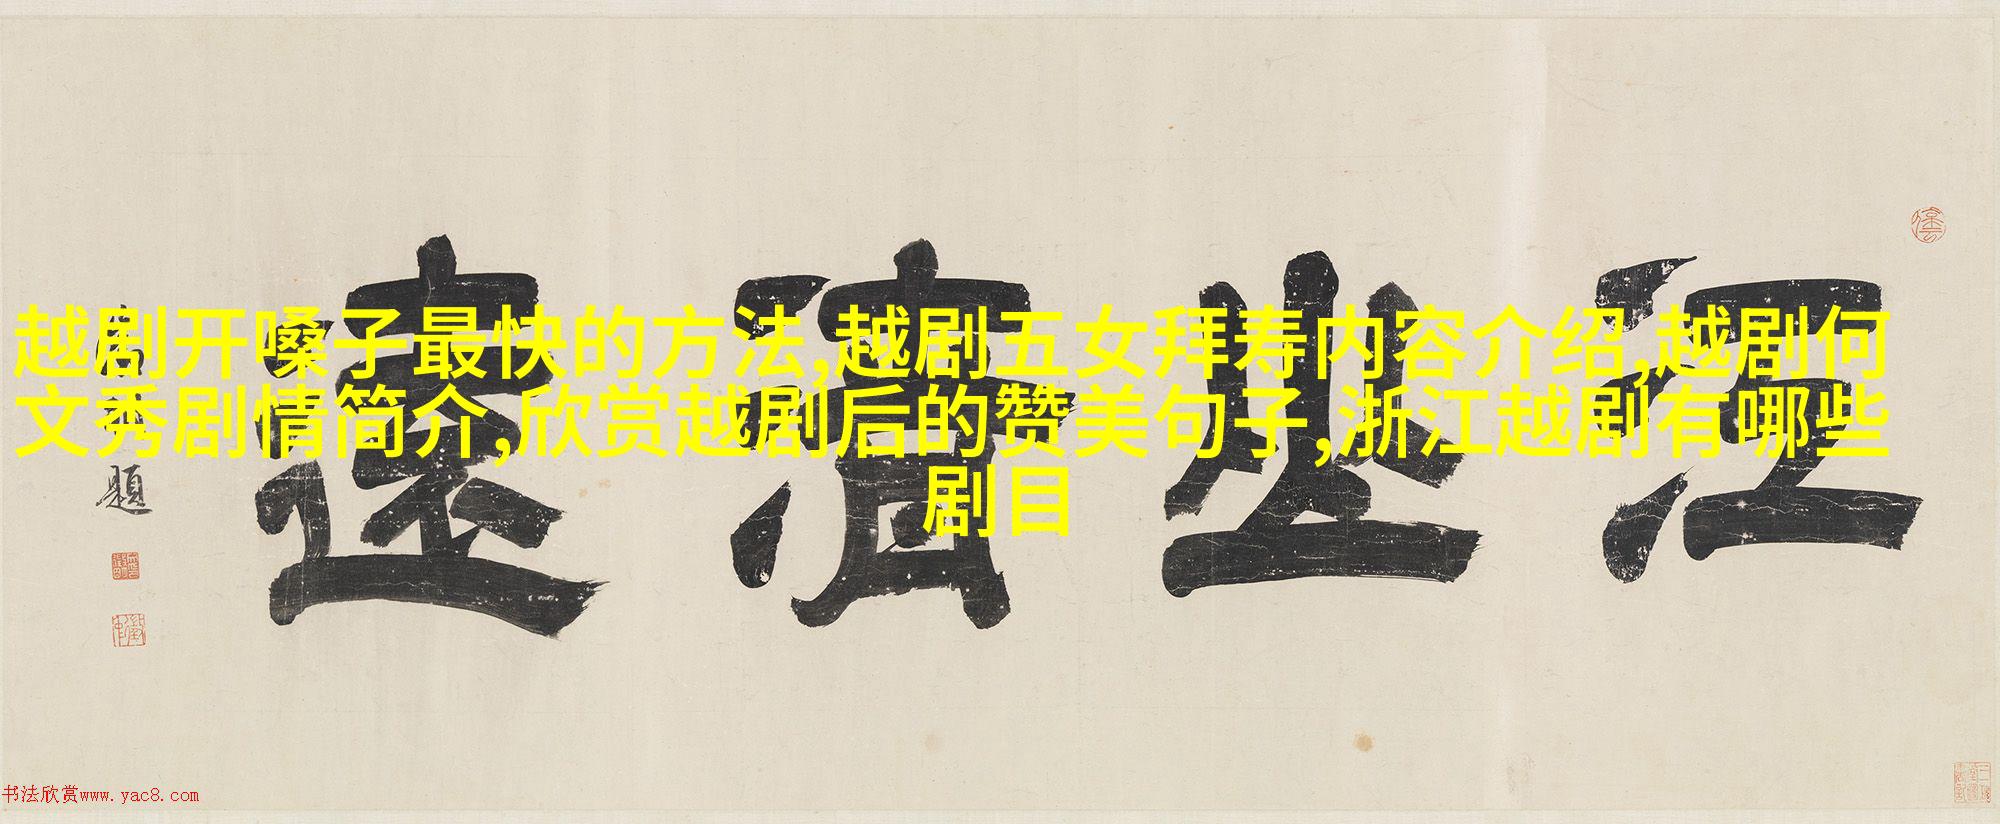 越剧开嗓子最快的方法,越剧五女拜寿内容介绍,越剧何
文秀剧情简介,欣赏越剧后的赞美句子,浙江越剧有哪些
剧目
江山清遠
題
书法欣赏www.yac8.com